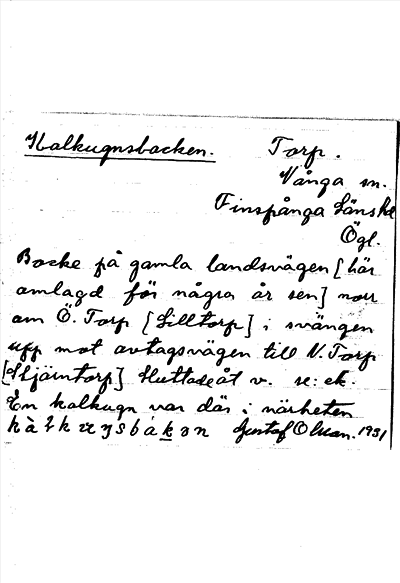 Kalkugnsbacken. Torp.
Vånga sn.
Finspånga länshd
Ögl.
Backe på gamla landsvägen [här
omlagd för några år sen] norr
om Ö. Torp [Lilltorp] i svängen
upp mot avtagsvägen till N. Torp
[Stjärntorp] Sluttade åt v. se: ek.
En kalkugn var där i närheten
Gustaf Olsson. 1931